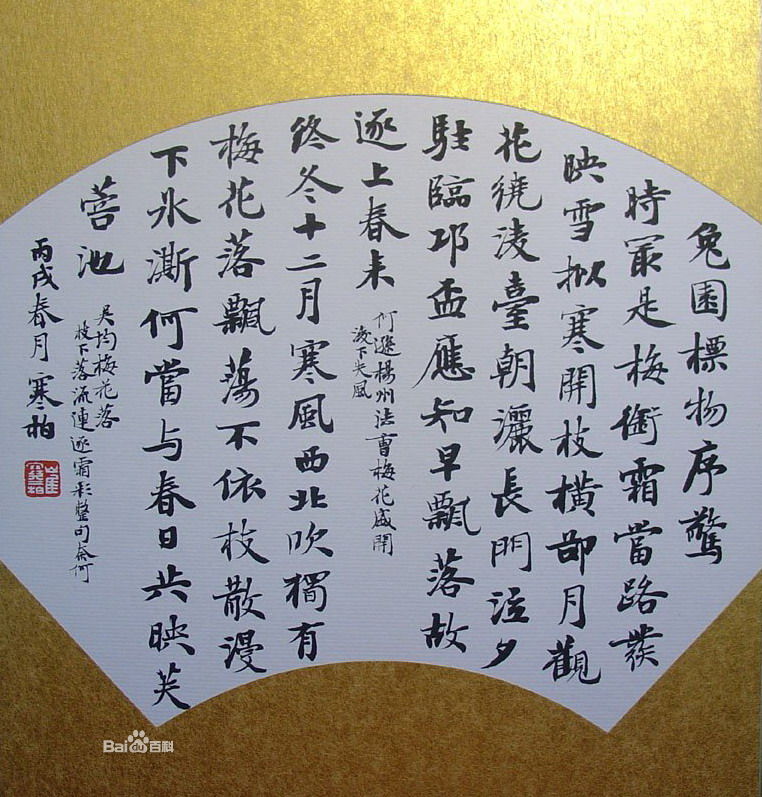 兔園標物序驚
時最是梅銜霜當路發
映雪拟寒開枝橫郤月觀
花繞淩臺朝灑長門泣夕
駐臨邛盃應知早飄落故
逐上春来
何遜楊州法曹梅花盛開
淩下失風
終冬十二月寒風西北吹獨有
梅花落飄蕩不依枝散漫
下氷澌何當与春日共映芙
蓉池
吳均梅花落
枝下落流連逐霜彩整句奈何
丙戌春月寒柏
Bai百科